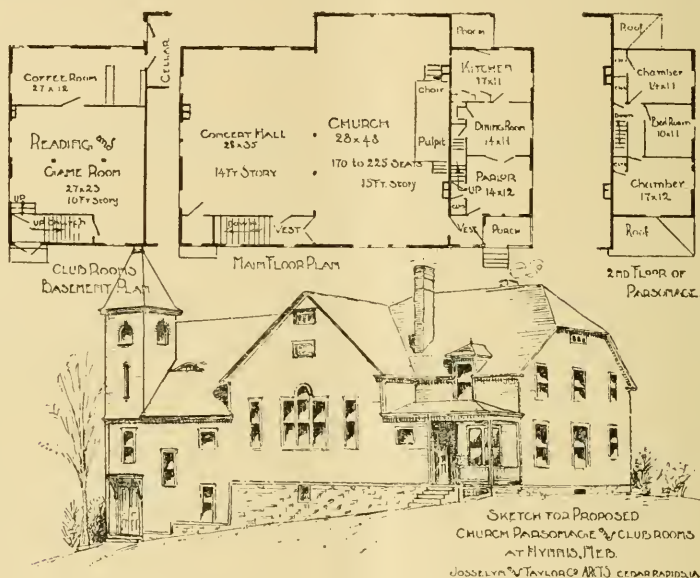 COFFEE ROOM
27 x 12
CELLAR
READING and
GAME ROOM
27x23
10 FT STORY
UP
UP
CLUB ROOMS
BASEMENT PLAN
CONCERT HALL
28 x 35
14 FT STORY
DOWN
VEST
CHURCH
28 x 48
170 to 225 SEATS
15 FT. STORY
Choir
Pulpit
PORCH
KITCHEN
17 x 11
DINING ROOM
14 x 11
PARLOR
14 x 12
UP
VEST
PORCH
MAIN FLOOR PLAN
Roof
Chamber
14 x 11
DOWN
Bed Room
10 x 11
Chamber
17 x 12
Roof
2ND FLOOR OF
PARSONAGE
SKETCH FOR PROPOSED
CHURCH PARSONAGE and CLUB ROOMS
AT HYNNIS, NEB.
JOSSELYN and TAYLOR CO ARCTS CEDAR RAPIDS, IA